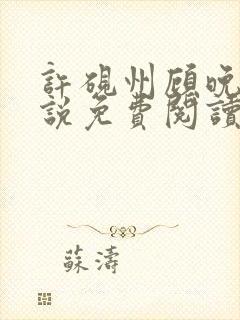 許硯州顧晚
說免費閱讀
蘇濤